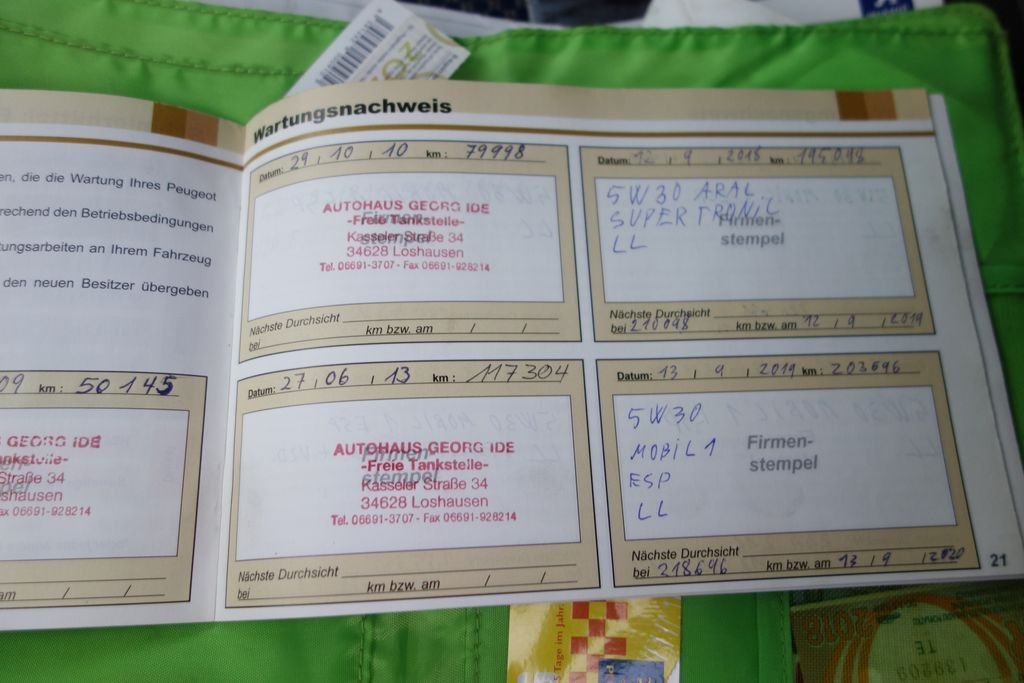 Wartungsnachweis
en, die die Wartung Ihres Peugeot
rechend den Betriebsbedingungen
tungsarbeiten an Ihrem Fahrzeug
den neuen Besitzer übergeben
09 km: 50145
GEORG IDE
Tankstelle-
Straße 34
shausen
ax 06691-928214
am / /
Datum: 29 , 10 , 10 km: 79998
Firmen-
stempel
AUTOHAUS GEORG IDE
-Freie Tankstelle-
Kasseler Straße 34
34628 Loshausen
Tel. 06691-3707 - Fax 06691-928214
Nächste Durchsicht
bei km bzw. am / /
Datum: 27 , 06 , 13 km: 117304
Firmen-
stempel
AUTOHAUS GEORG IDE
-Freie Tankstelle-
Kasseler Straße 34
34628 Loshausen
Tel. 06691-3707 - Fax 06691-928214
Nächste Durchsicht
bei km bzw. am / /
Datum: 12 , 9 , 2018 km: 195098
5W30 ARAL
SUPER TRONIC
LL
Firmen-
stempel
Nächste Durchsicht
bei 210098 km bzw. am 12 , 9 , 2019
Datum: 13 , 9 , 2019 km: 203696
5W30
MOBIL 1
ESP
LL
Firmen-
stempel
Nächste Durchsicht
bei 218696 km bzw. am 13 , 9 , 2020
21
Tage im Jahr.
2018
TE
139209